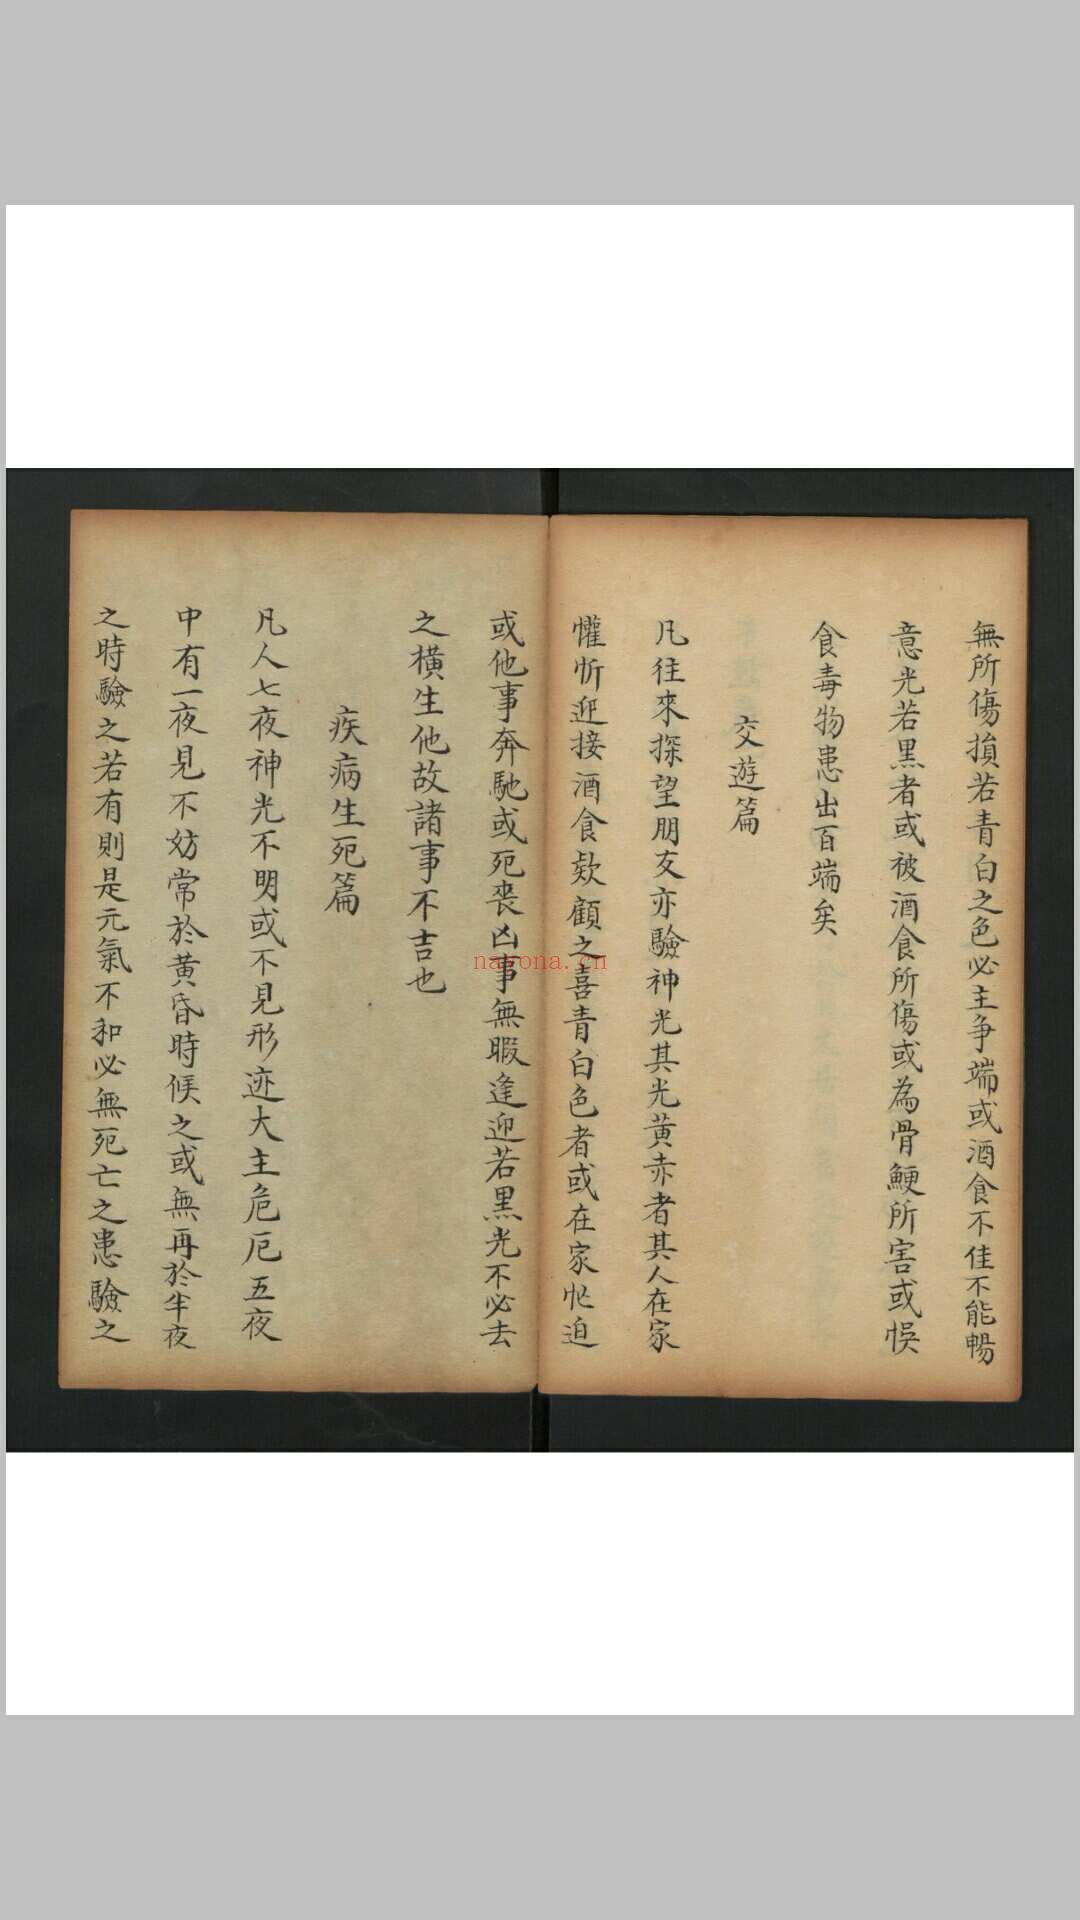 無所傷損若青白之色必主争端或酒食不佳不能暢
意光若黒者或被酒食所傷或為骨鯁所害或悮
食毒物患出百端矣
交遊篇
凡往來探望朋友亦驗神光其光黄赤者其人在家
懽忻迎接酒食欵顧之喜青白色者或在家忙迫
或他事奔馳或死喪凶事無暇逢迎若黒光不必去
之橫生他故諸事不吉也
疾病生死篇
凡人七夜神光不明或不見形迹大主危厄五夜
中有一夜見不妨常於黄昏時候之或無再於半夜
之時驗之若有則是元氣不和必無死亡之患驗之
nayona.cn